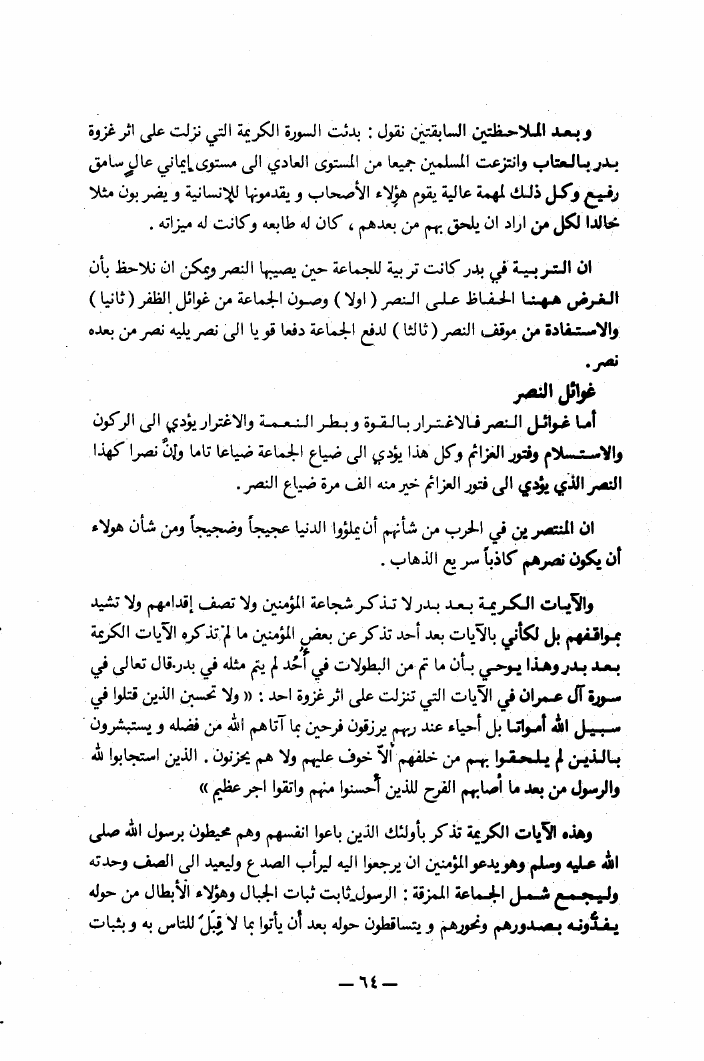 وبعد الملاحظتين السابقتين نقول : بدئت السورة الكريمة التي نزلت على اثر غزوة
بدر بالعتاب وانتزعت المسلمين جميعا من المستوى العادي الى مستوى إيماني عالٍ سامق
رفيع وكل ذلك لمهمة عالية يقوم هؤلاء الأصحاب ويقدمونها للإنسانية ويضربون مثلا
خالدا لكل من اراد ان يلحق بهم من بعدهم ، كان له طابعه وكانت له ميزاته .
ان التربية في بدر كانت تربية للجماعة حين يصيبها النصر ويمكن ان نلاحظ بأن
الغرض ههنا الحفاظ على النصر ( اولا ) وصون الجماعة من غوائل الظفر ( ثانيا )
والاستفادة من موقف النصر ( ثالثا ) لدفع الجماعة دفعا قويا الى نصر يليه نصر من بعده
نصر .
غوائل النصر
أما غوائل النصر فالاغترار بالقوة وبطر النعمة والاغترار يؤدي الى الركون
والاستسلام وفتور العزائم وكل هذا يؤدي الى ضياع الجماعة ضياعا تاما وإنَّ نصرا كهذا
النصر الذي يؤدي الى فتور العزائم خير منه الف مرة ضياع النصر .
ان المنتصرين في الحرب من شأنهم أن يملؤوا الدنيا عجيجاً وضجيجاً ومن شأن هولاء
أن يكون نصرهم كاذباً سريع الذهاب .
والآيات الكريمة بعد بدر لا تذكر شجاعة المؤمنين ولا تصف إقدامهم ولا تشيد
بمواقفهم بل لكأني بالآيات بعد أحد تذكر عن بعض المؤمنين ما لم تذكره الآيات الكريمة
بعد بدر وهذا يوحي بأن ما تم من البطولات في أُحُد لم يتم مثله في بدر.قال تعالى في
سورة آل عمران في الآيات التي تنزلت على اثر غزوة احد : « ولا تحسبن الذين قتلوا في
سبيل الله أمواتا بل أحياء عند ربهم يرزقون فرحين بما آتاهم الله من فضله ويستبشرون
بالذين لم يلحقوا بهم من خلفهم ألاّ خوف عليهم ولا هم يحزنون . الذين استجابوا لله
والرسول من بعد ما أصابهم القرح للذين أحسنوا منهم واتقوا اجر عظيم »
وهذه الآيات الكريمة تذكر بأولئك الذين باعوا انفسهم وهم محيطون برسول الله صلى
الله عليه وسلم وهو يدعو المؤمنين ان يرجعوا اليه ليرأب الصدع وليعيد الى الصف وحدته
وليجمع شمل الجماعة الممزقة : الرسول ثابت ثبات الجبال وهؤلاء الأبطال من حوله
يفدُّونه بصدورهم ونحورهم ويتساقطون حوله بعد أن يأتوا بما لا قِبَلَ للناس به وبثبات
— ٦٤ —